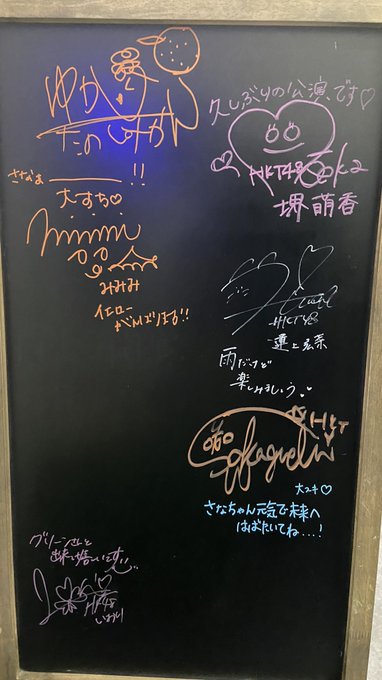 ゆか
たのしみかん
さなたま
!!
大すち♡
みみみ
イエロー
がんばりまる!!
久しぶりの公演です♡
HKT48
堺萌香
HKT48
運上弘菜
雨だけど
楽しみましょう
HKT
Sakaguchi
大スキ♡
さなちゃん元気で未来へ
はばたいてね...!
グリーン
出来て嬉しいです
HKT48
いおり